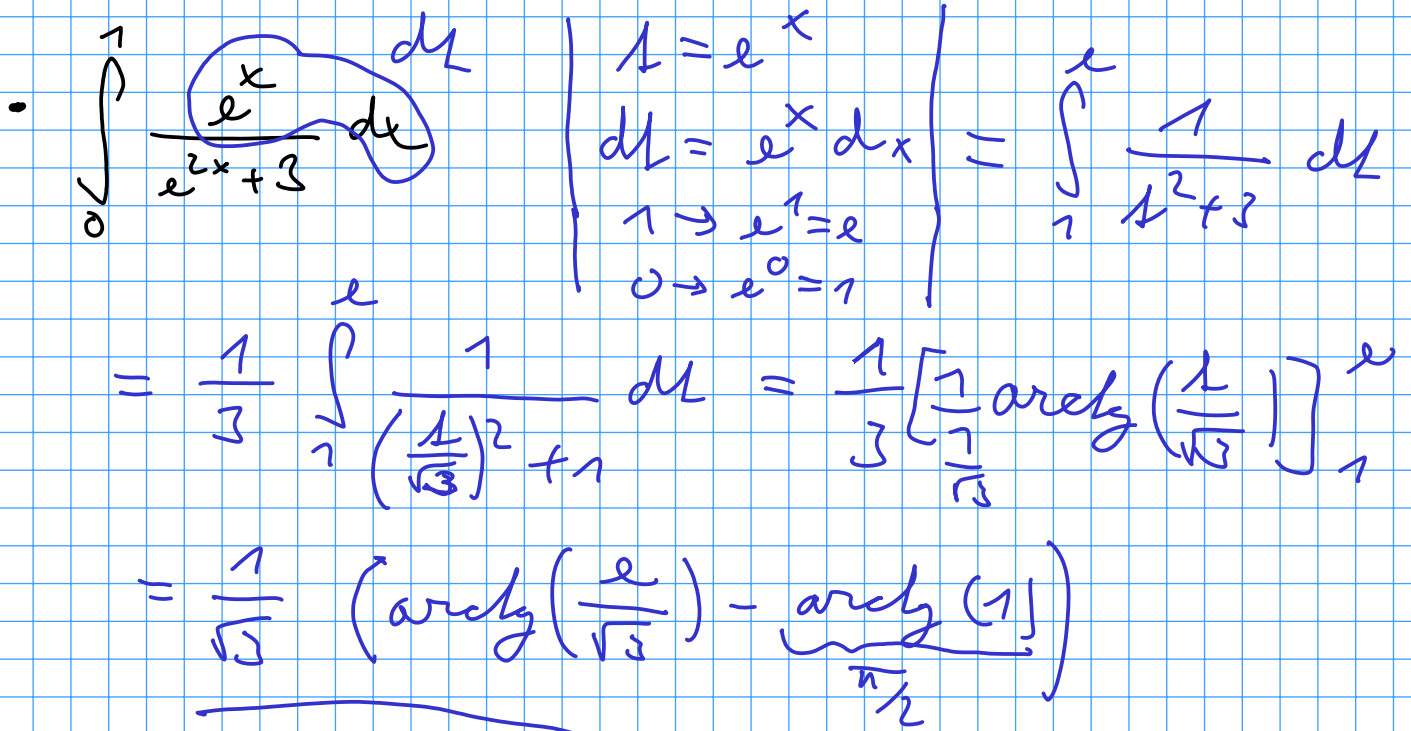 ∫₀¹ e^x / (e^{2x} + 3) dx dt | t = e^x, dt = e^x dx, 1 → e^1 = e, 0 → e^0 = 1 | = ∫₁^e 1 / (t² + 3) dt
= 1/3 ∫₁^e 1 / ((t/√3)² + 1) dt = 1/3 [1/(1/√3) arctg (t/√3)]₁^e
= 1/√3 (arctg (e/√3) − arctg (1))
π/2